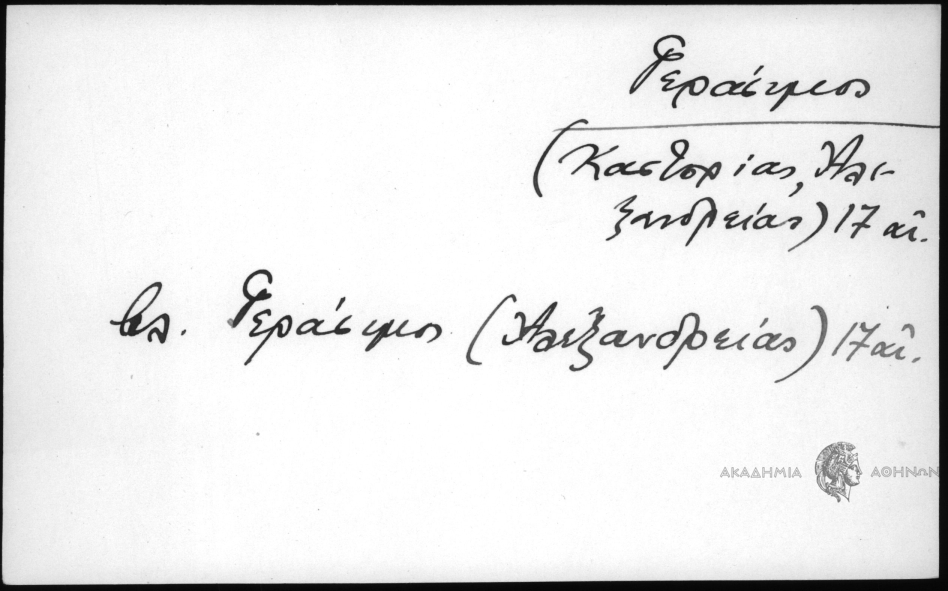 Γεράσιμος
(Καστορίας, Ἀλε-
ξανδρείας) 17 αἰ.
βλ. Γεράσιμος (Ἀλεξανδρείας) 17 αἰ.
ΑΚΑΔΗΜΙΑ ΑΘΗΝΩΝ